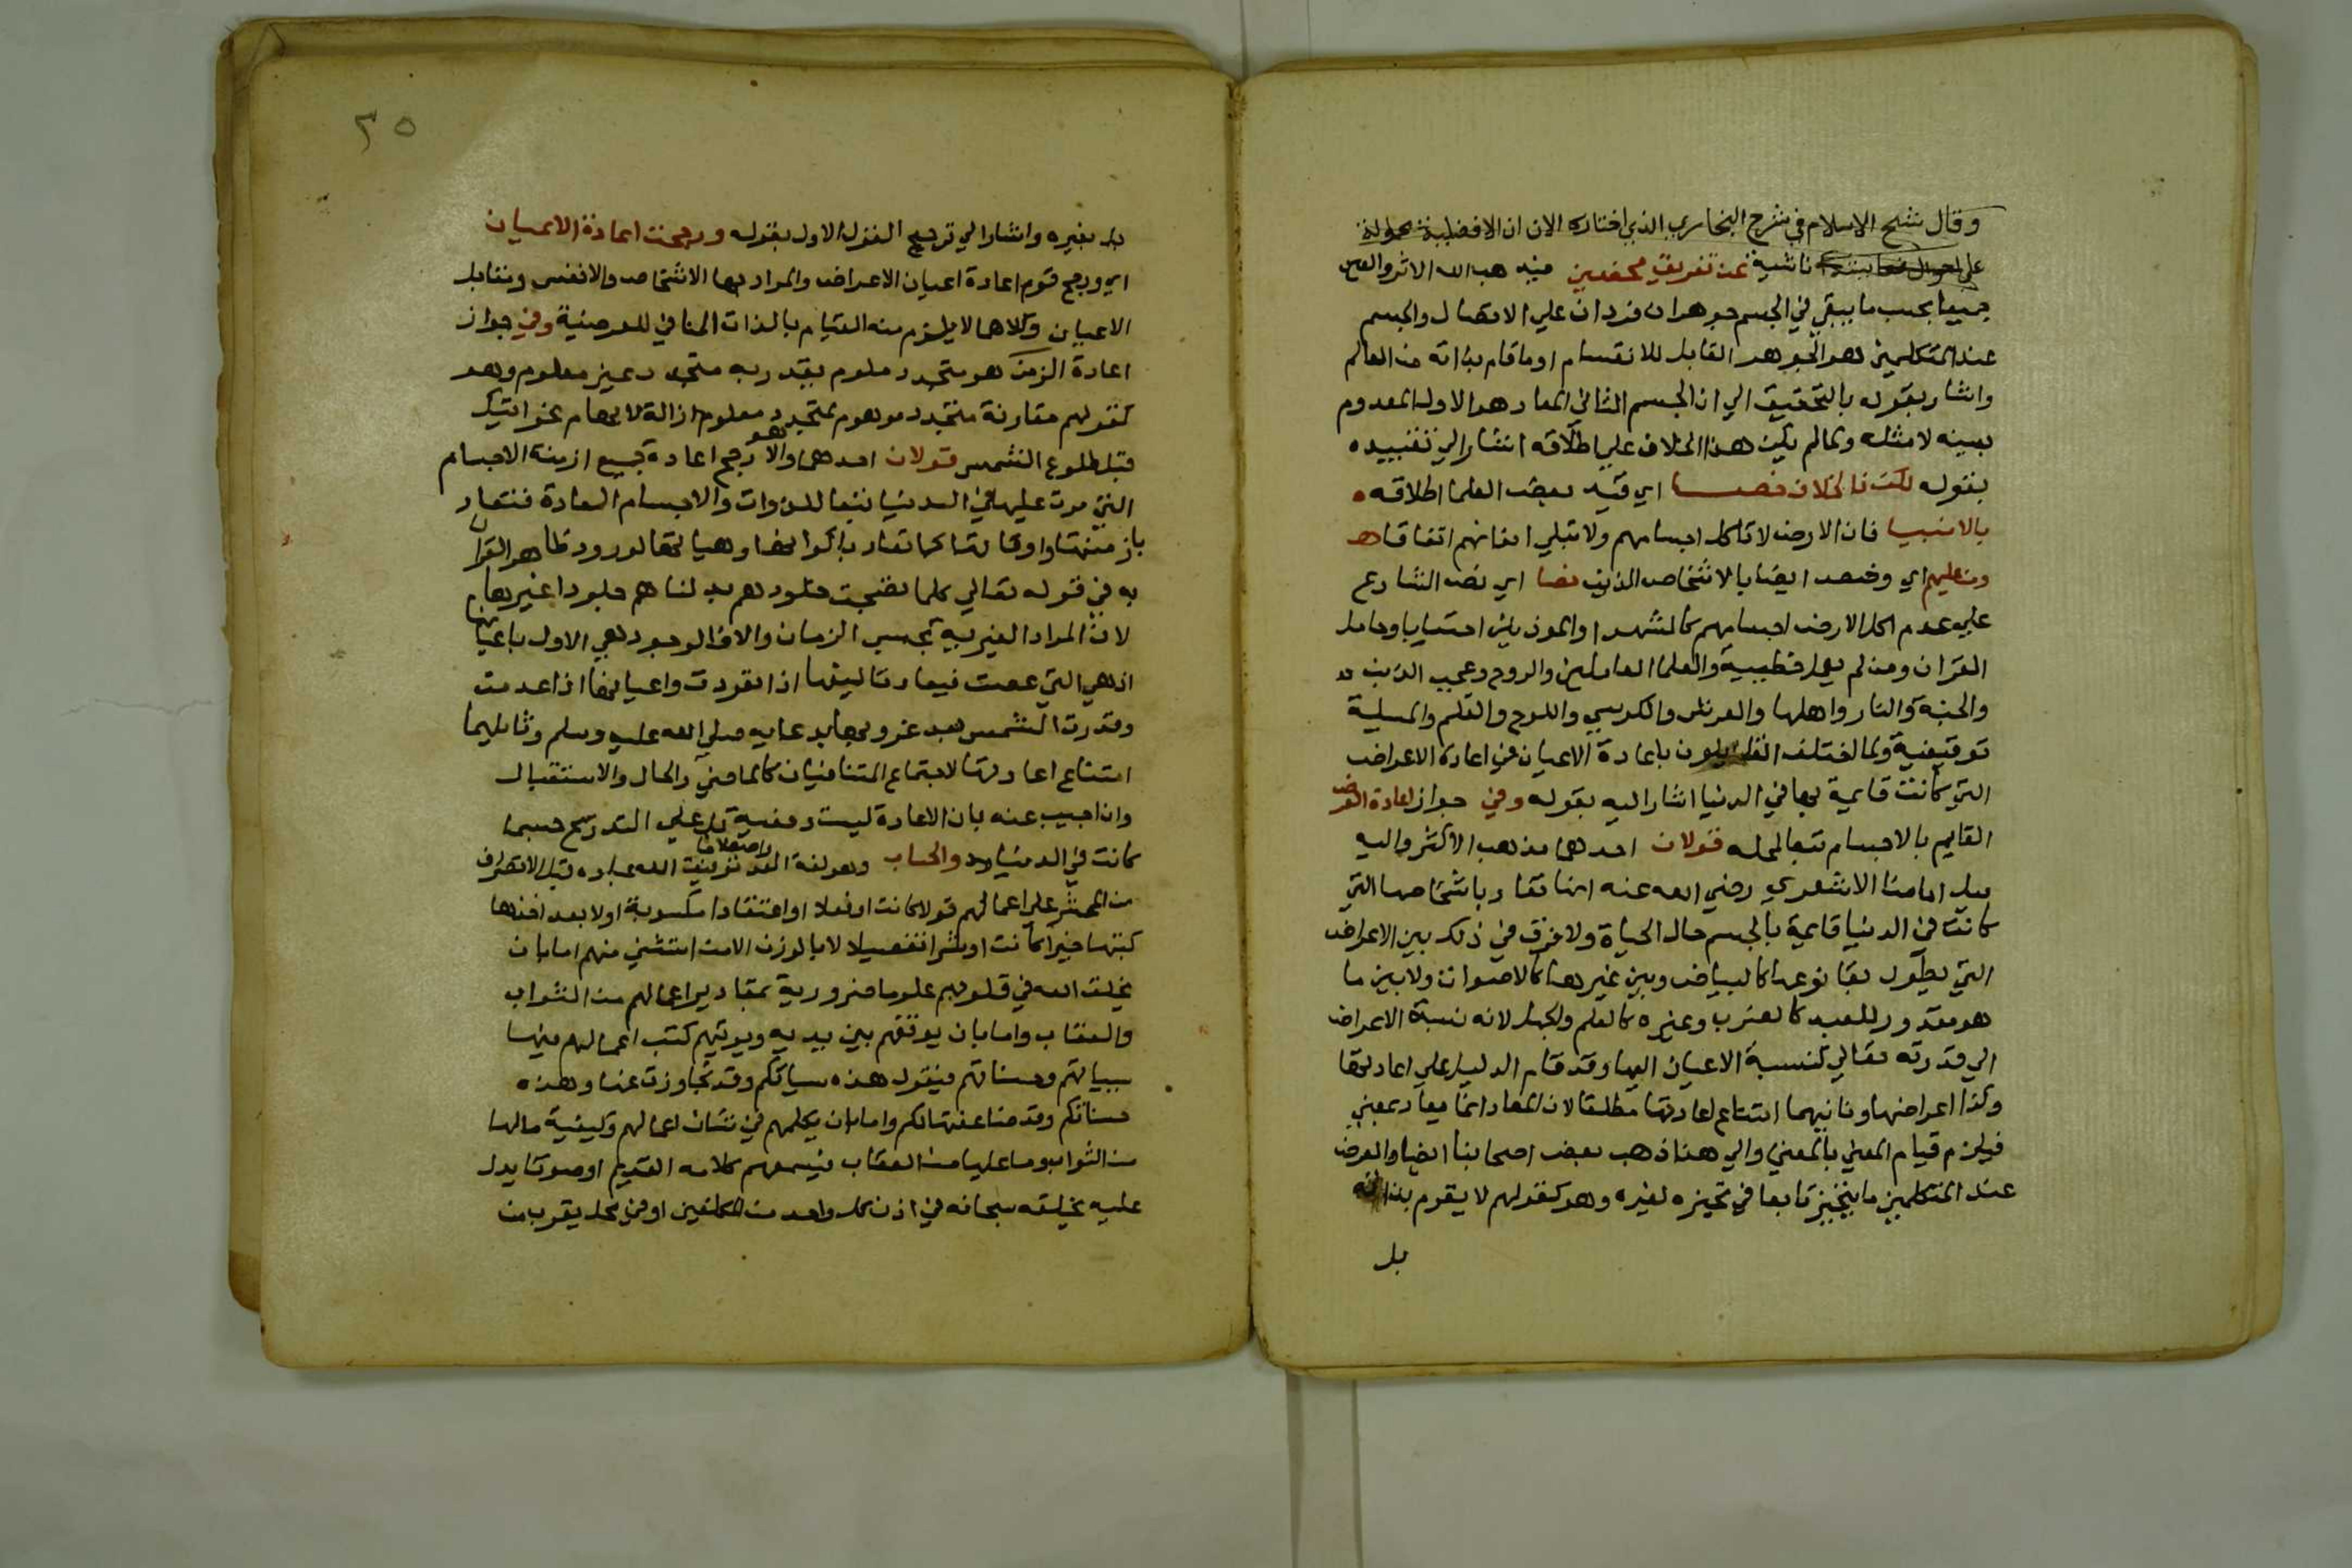 وقال شيخ الاسلام في شرح البخاري الذي اختاره الان ان الافضلية محمولة
على احوال ناشية عن تفريق محضين فيه هب الله الاثر والعين
جميعا بحيث ما يبقي في الجسم جوهران فردان علي الاتصال والجسم
عند المتكلمين هو الجوهر القابل للانقسام او ما قام بذاته من العالم
واشار بقوله بالتحقيق الي ان الجسم الثاني المعاد هو الاول المعدوم
بعينه لا مثله ولما لم يكن هذا الخلاف علي اطلاقه اشار الي تقييده
بقوله لكن ذا الخلاف خصا اي قيد بعض العلما اطلاقه
بالانبيا فان الارض لا تاكل اجسامهم ولا تبلي ابدانهم اتفاقا
ومن عليهم اي وخصه ايضا بالاشخاص الذين نصا اي نص الشارع
علي عدم اكل الارض اجسامهم كالشهدا والموذنين احتسابا وحامل
القران ومن لم يعمل خطيية والعلما العاملين والروح وعجب الذنب
والجنة والنار واهلها والعرش والكرسي واللوح والقلم والمسيلة
توقيفية ولما اختلف القايلون باعادة الاعيان في اعادة الاعراض
التي كانت قايمة بها في الدنيا اشار اليه بقوله وفي جواز اعادة العرض
القايم بالاجسام تبعا لمحله قولان احدهما مذهب الاكثر واليه
ميل امامنا الاشعري رضي الله عنه انها تعاد باشخاصها التي
كانت في الدنيا قايمة بالجسم حال الحياة ولا فرق في ذلك بين الاعراض
التي يطول بقا نوعها كالبياض وبين غيرها كالاصوات ولا بين ما
هو مقدور للعبد كالضرب وغيره كالعلم والجهل لانه نسبة الاعراض
الي قدرته تعالي كنسبة الاعيان اليها وقد قام الدليل علي اعادتها
وكذا اعراضها وثانيهما امتناع اعادتها مطلقا لان المعاد انما يعاد بمعني
فيلزم قيام المعني بالمعني والي هذا ذهب بعض اصحابنا ايضا والعرض
عند المتكلمين ما يتحيز تابعا في تحيزه لغيره وهو كقولهم لا يقوم بذاته
بل
٣٥
بل بغيره واشار الي ترجيح القول الاول بقوله ورجحت اعادة الاعيان
اي ورجح قوم اعادة اعيان الاعراض والمراد بها الاشخاص والانفس وتقابل
الاعيان وكلاهما لا يلزم منه القيام بالذات المنافي للعرضية وفي جواز
اعادة الزمن هو متجدد معلوم يقدر به متجدد غير معلوم وهو
كقولهم مقارنة متجدد موهوم لمتجدد معلوم ازالة للابهام نحو اتيك
قبل طلوع الشمس قولان احدهما وهو الارجح اعادة جميع ازمنة الاجسام
التي مرت عليها في الدنيا تبعا للذوات والاجسام المعادة فتعاد
بازمنتها واوقاتها كما تعاد بالوانها وهياتها لورود ظاهر القران
به في قوله تعالي كلما نضجت جلودهم بدلناهم جلودا غيرها
لان المراد الغيرية بحسب الزمان والا فالوجود هي الاول باعيانها
اذ هي التي عصت فيعاد تاليفها اذا تفرقت واعيانها اذا عدمت
وقد ردت الشمس بعد غروبها بدعايه صلي الله عليه وسلم وثانيهما
امتناع اعادتها لاجتماع المتنافيان كالماضي والحال والاستقبال
وان اجيب عنه بان الاعادة ليست دفعية بل علي التدريج حسبما
كانت في الدنيا والحساب وهو لغة العد واصطلاحا توقيف الله عباده قبل الانصراف
من المحشر علي اعمالهم قولا كانت او فعلا او اعتقادا مكسوبة اولا بعد اخذها
كتبها خيرا كانت او شرا تفصيلا لا بالوزن الا من استثني منهم اما بان
يخلق الله في قلوبهم علوما ضرورية بمقادير اعمالهم من الثواب
والعقاب واما بان يوقفهم بين يديه ويوتيهم كتب اعمالهم فيها
سياتهم وحسناتهم فيقول هذه سياتكم وقد تجاوزت عنها وهذه
حسناتكم وقد ضاعفتها لكم واما بان يكلمهم في شان اعمالهم وكيفية ما لها
من الثواب وما عليها من العقاب فيسمعهم كلامه القديم او صوتا يدل
عليه يخلقه سبحانه في اذن كل واحد من المكلفين او في محل يقرب من